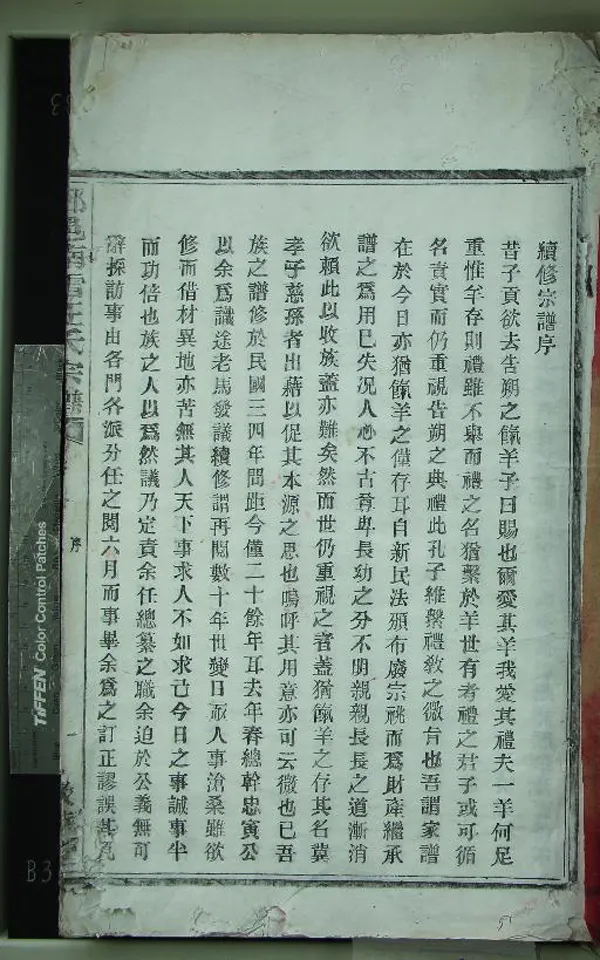 續修宗譜序
昔子貢欲去告朔之餼羊子曰賜也爾愛其羊我愛其禮夫一羊何足
重惟羊存則禮雖不舉而禮之名猶繫於羊世有考禮之君子或可循
名責實而仍重視告朔之典禮此孔子維繫禮教之微旨也吾謂家譜
在於今日亦猶餼羊之僅存耳自新民法頒布廢宗祧而爲財產繼承
譜之爲用已失况人心不古尊卑長幼之分不明親親長長之道漸消
欲賴此以收族蓋亦難矣然而世仍重視之者蓋猶餼羊之存其名冀
孝子慈孫者出藉以促其本源之思也嗚呼其用意亦可云微也已吾
族之譜修於民國三四年間距今僅二十餘年耳去年春總幹忠寅公
以余爲識途老馬發議續修謂再閱數十年世變日亟人事滄桑雖欲
修而借材異地亦苦無其人天下事求人不如求己今日之事誠事半
而功倍也族之人以爲然議乃定責余任總纂之職余迫於公義無可
辭採訪事由各門各派分任之閱六月而事畢余爲之訂正謬誤其
氏宗譜
序
一
TIFFEN Color Control Patches
B3